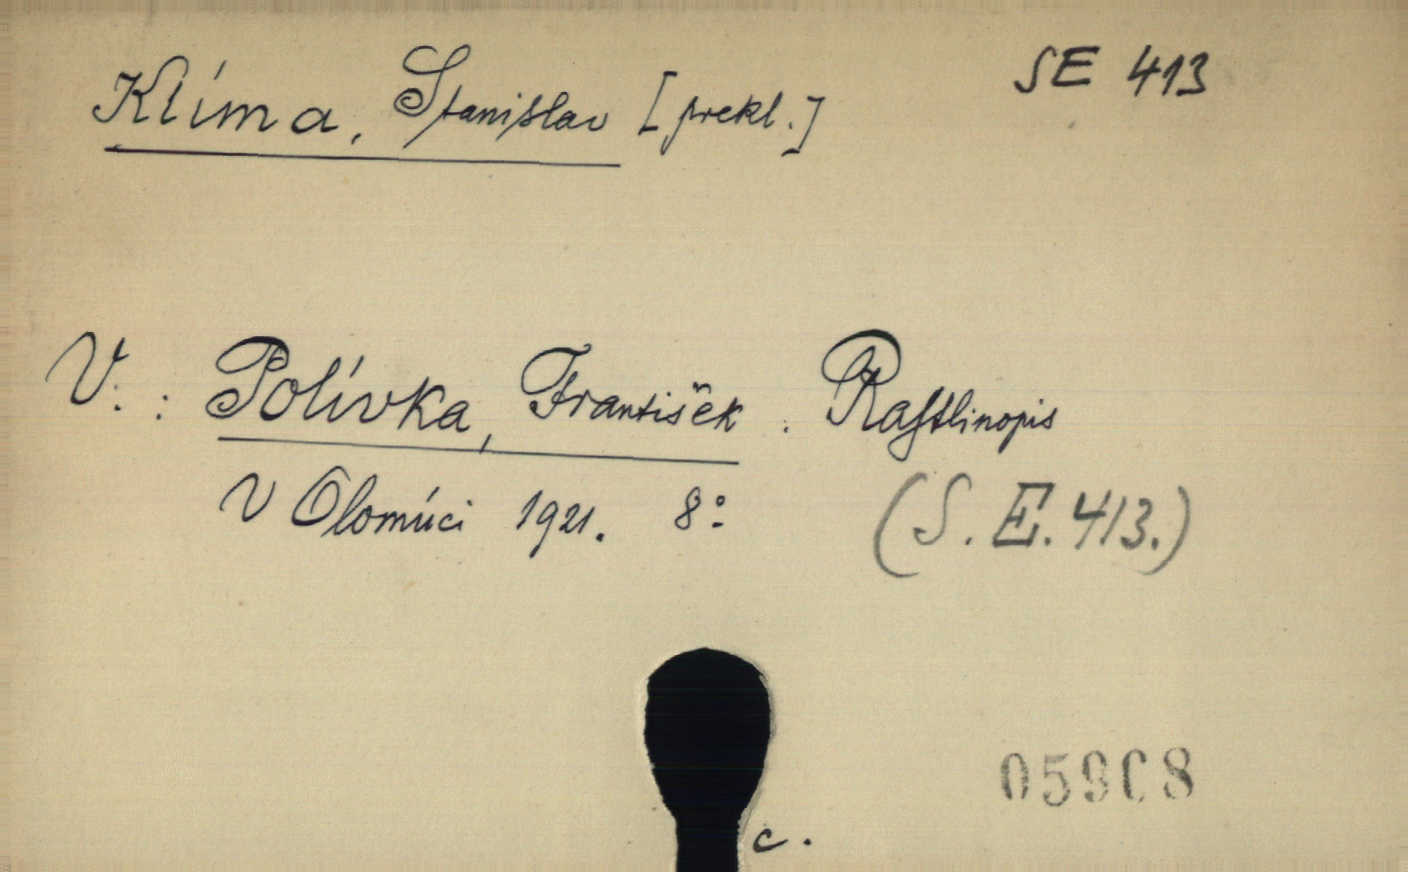 Klíma, Stanislav [prekl.] SE 413
V.: Polívka, František. Rastlinopis
V Olomúci 1921. 8° (S. E. 413.)
05908
c.